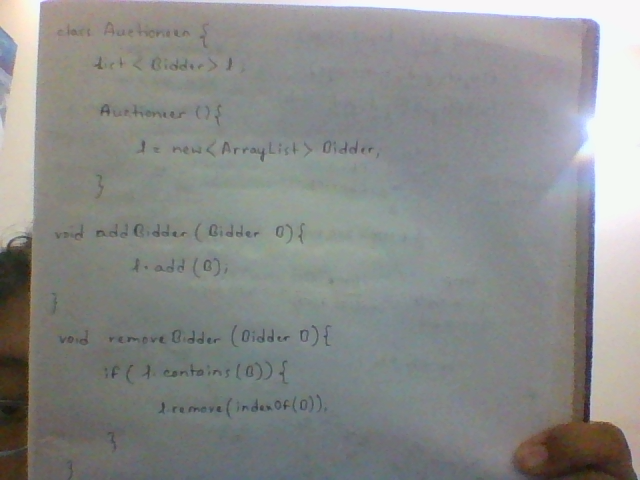 class Auctioneer {
list < Bidder > l;
Auctioneer () {
l = new < ArrayList > Bidder;
}
void addBidder ( Bidder B) {
l.add (B);
}
void removeBidder (Bidder B) {
if ( l.contains (B)) {
l.remove (indexOf(B));
}
}